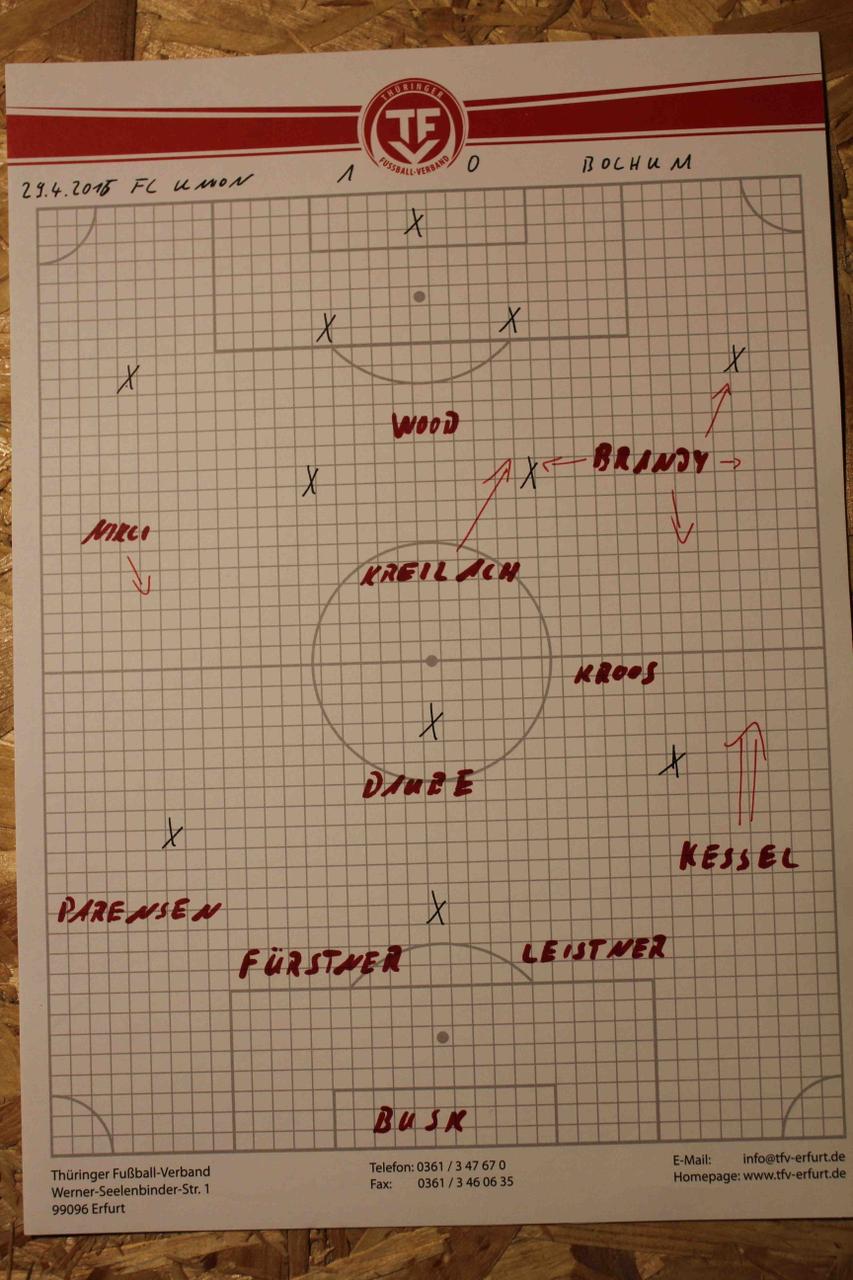 THÜRINGER
TF
FUSSBALL-VERBAND
29.4.2016 FC UNION 1 0 BOCHUM
X
X X
X X
WOOD
X X BRANDY
KREILACH
KROOS
X
X
DAUBE
X
KESSEL
PARENSEN X
FÜRSTNER LEISTNER
BUSK
Thüringer Fußball-Verband
Werner-Seelenbinder-Str. 1
99096 Erfurt
Telefon: 0361 / 3 47 67 0
Fax: 0361 / 3 46 06 35
E-Mail: info@tfv-erfurt.de
Homepage: www.tfv-erfurt.de